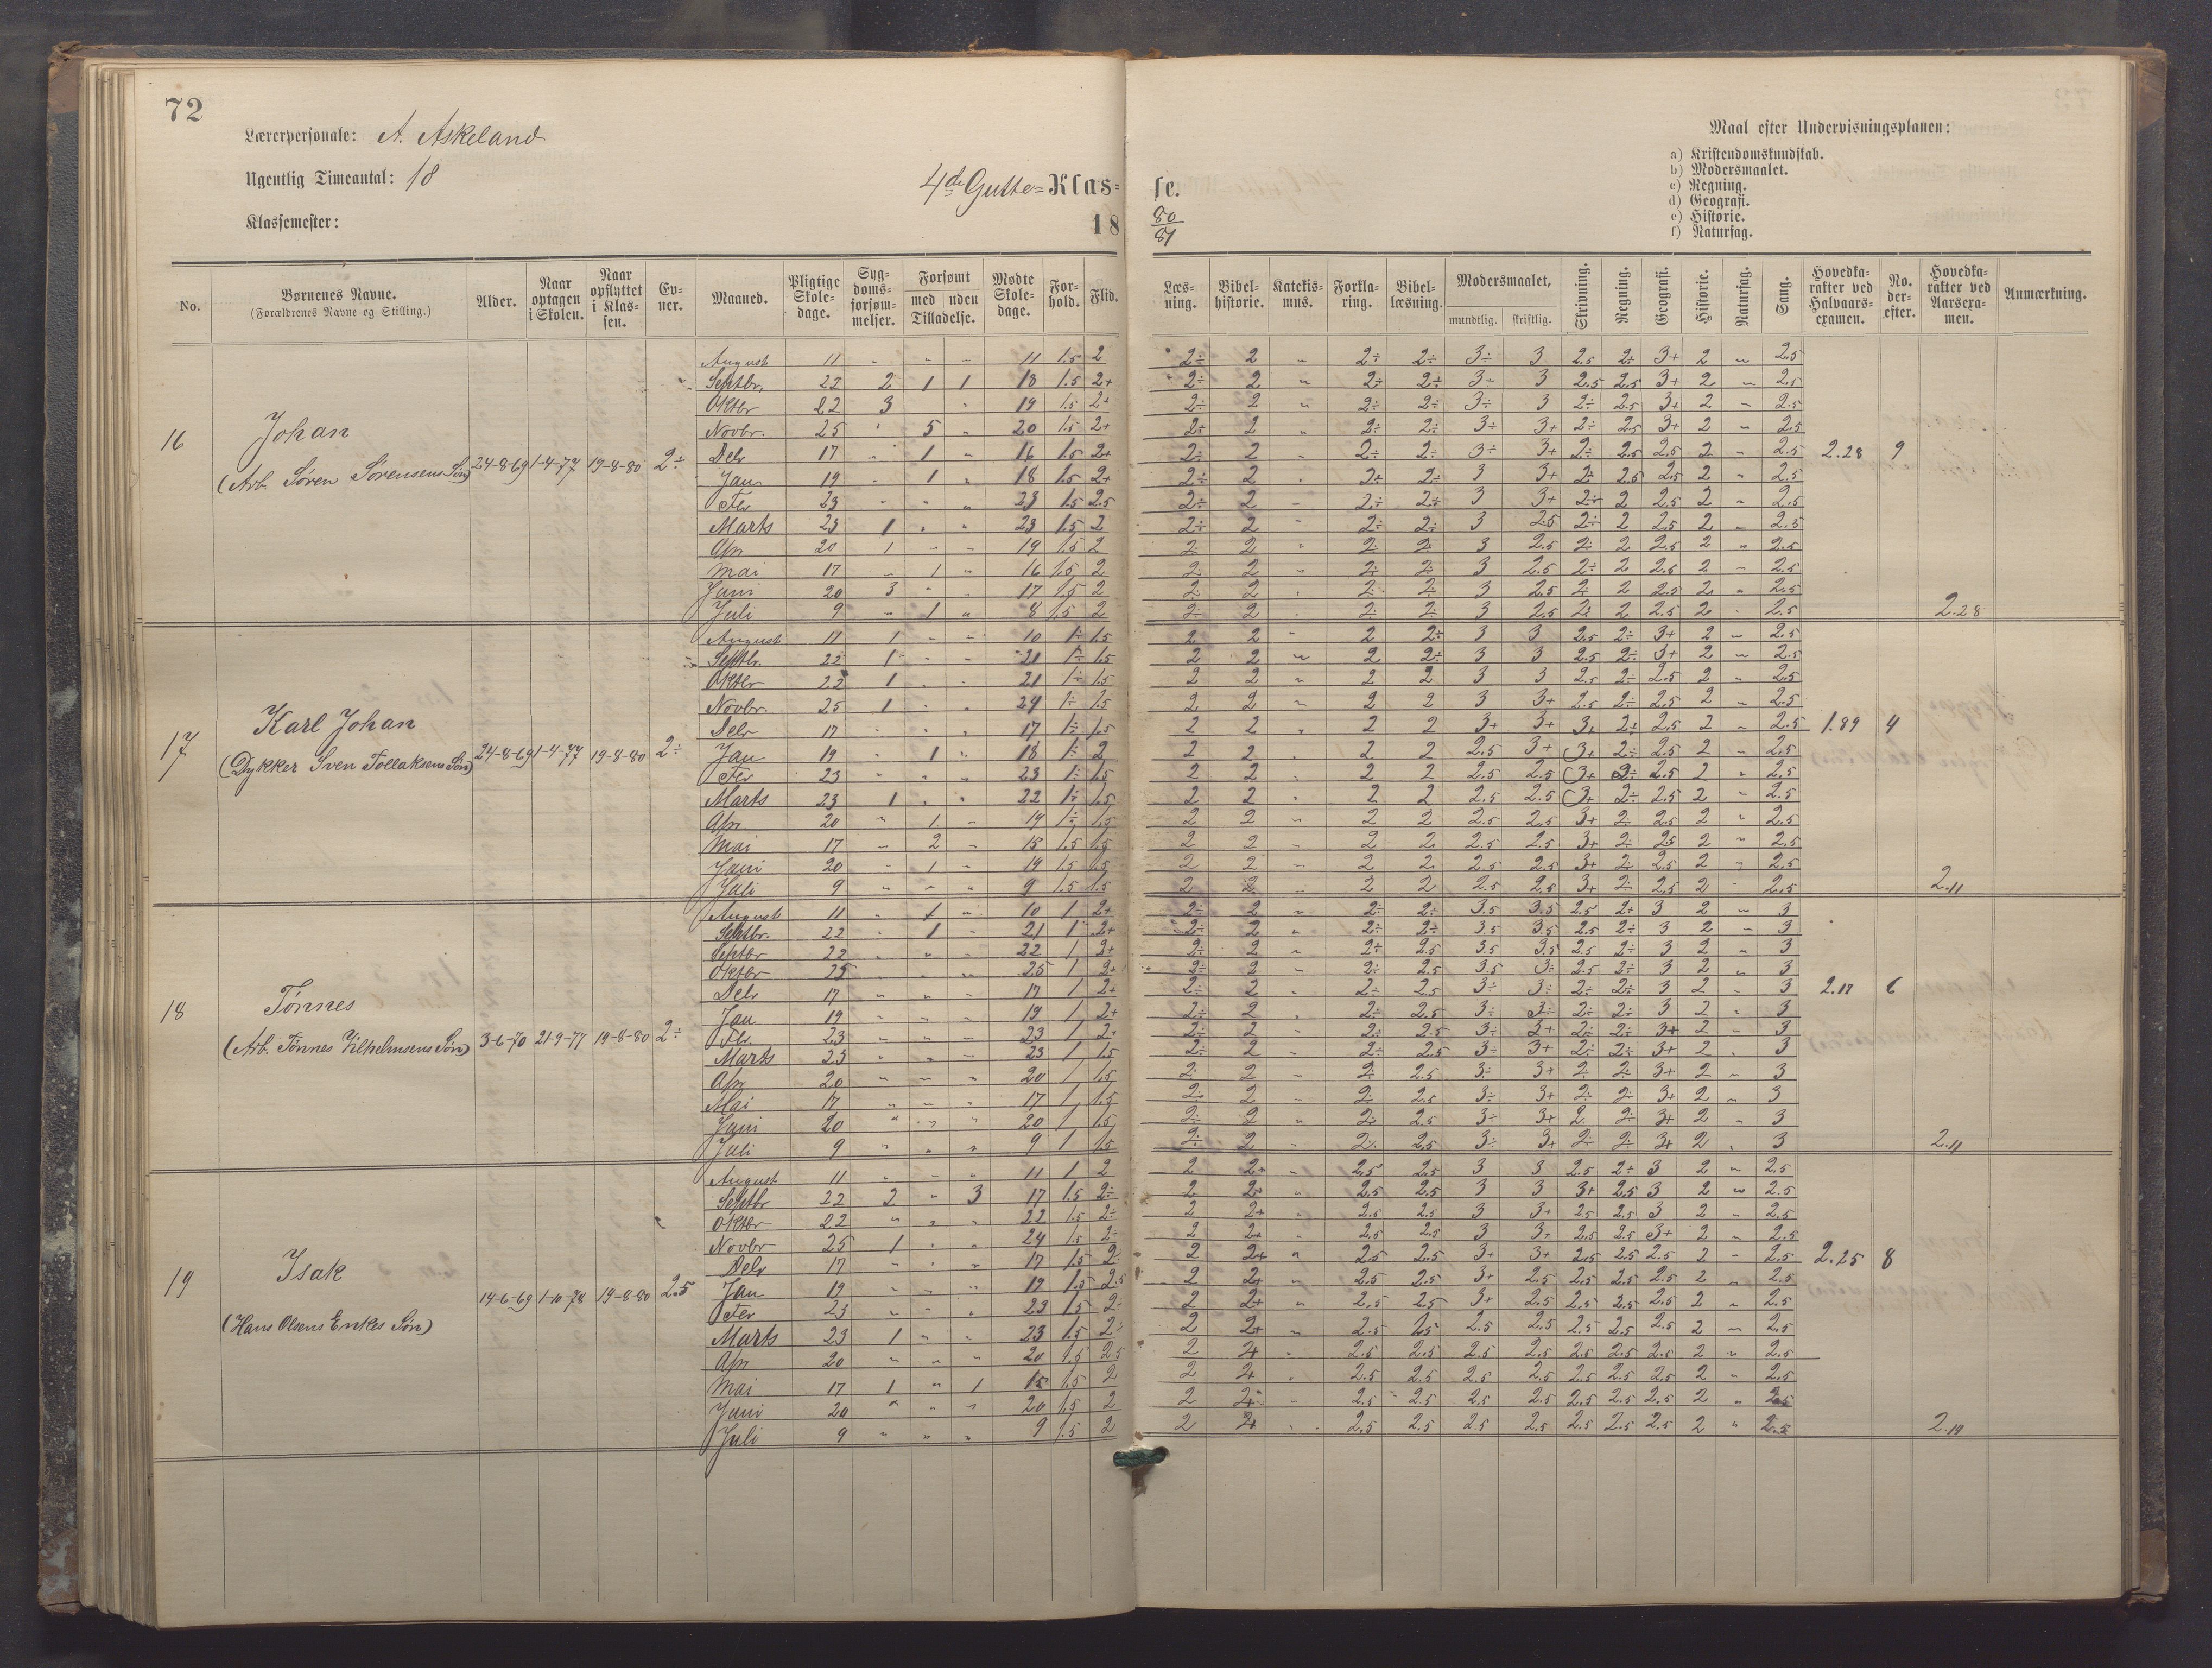 72
Lærerpersonale: A. Askeland
Ugentlig Timeantal: 18
Klassemester:
4de Gutte=Klas=
se.
18 80/81
Maal efter Undervisningsplanen:
a) Kristendomskundskab.
b) Modersmaalet.
c) Regning.
d) Geografi.
e) Historie.
f) Naturfag.
No. Børnenes Navne. (Forældrenes Navne og Stilling.) Alder. Naar optagen i Skolen. Naar opflyttet i Klassen. Evner. Maaned. Pligtige Skoledage. Sygdomsforsømmelser. Forsømt med uden Tilladelse. Mødte Skoledage. Forhold. Flid.
Læsning. Bibelhistorie. Katekismus. Forklaring. Bibellæsning. Modersmaalet, mundtlig. skriftlig. Skrivning. Regning. Geografi. Historie. Naturfag. Sang. Hovedkarakter ved Halvaarsexamen. No. derefter. Hovedkarakter ved Aarsexamen. Anmærkning.
16 Johan
(Arb. Søren Sørensens Søn) 24-8-69 1-4-77 19-8-80 2÷
August 11 " " " 11 1.5 2 2÷ 2 " 2÷ 2÷ 3÷ 3 2.5 2÷ 3+ 2 " 2.5
Septbr. 22 2 1 1 18 1.5 2+ 2÷ 2 " 2÷ 2÷ 3÷ 3 2.5 2.5 3+ 2 " 2.5
Oktbr 22 3 " 19 1.5 2+ 2÷ 2 " 2÷ 2÷ 3÷ 3 2÷ 2.5 3+ 2 " 2.5
Novbr. 25 " 5 " 20 1.5 2+ 2÷ 2 " 2÷ 2÷ 3÷ 3+ 2÷ 2.5 3+ 2 " 2.5
Debr 17 " 1 " 16 1.5 2+ 2÷ 2 " 2÷ 2÷ 3÷ 3+ 2÷ 2.5 2.5 2 " 2.5 2.28 9
Jan 19 " 1 " 18 1.5 2+ 2÷ 2 " 2÷ 2÷ 3 3+ 2÷ 2.5 2.5 2 " 2.5
Febr 23 " " " 23 1.5 2.5 2÷ 2 " 2÷ 2÷ 3 3+ 2÷ 2 2.5 2 " 2.5
Marts 23 1 " " 23 1.5 2 2÷ 2 " 2÷ 2÷ 3 2.5 2÷ 2 2.5 2 " 2.5
Apr 20 1 " " 19 1.5 2 2÷ 2 " 2÷ 2÷ 3 2.5 2÷ 2 2.5 2 " 2.5
Mai 17 " 1 " 16 1.5 2 2÷ 2 " 2÷ 2÷ 3 2.5 2÷ 2 2.5 2 " 2.5
Juni 20 3 " " 17 1.5 2 2÷ 2 " 2÷ 2÷ 3 2.5 2÷ 2 2.5 2 " 2.5
Juli 9 " 1 " 8 1.5 2 2÷ 2 " 2÷ 2÷ 3 2.5 2÷ 2 2.5 2 " 2.5 2.28
17 Karl Johan
(Dykker Sven Tollaksens Søn) 24-8-69 1-4-77 19-8-80 2÷
August 11 1 " " 10 1÷ 1.5 2 2 " 2 2÷ 3 3 2.5 2÷ 3+ 2 " 2.5
Septbr. 22 1 " " 21 1÷ 1.5 2 2 " 2 2÷ 3 3 2.5 2÷ 3+ 2 " 2.5
Oktbr 22 1 " " 21 1÷ 1.5 2 2 " 2 2 3 3 2.5 2÷ 2.5 2 " 2.5
Novbr. 25 1 " " 24 1÷ 1.5 2 2 " 2 2 3 3+ 2.5 2÷ 2.5 2 " 2.5
Debr 17 " " " 17 1÷ 1.5 2 2 " 2 2 3+ 3+ 3+ 2÷ 2.5 2 " 2.5 1.89 4
Jan 19 " 1 " 18 1÷ 2 2 2 " 2 2 2.5 3+ 3+ 2÷ 2.5 2 " 2.5
Febr 23 " " " 23 1÷ 1.5 2 2 " 2 2 2.5 2.5 3+ 2÷ 2.5 2 " 2.5
Marts 23 1 " " 22 1÷ 1.5 2 2 " 2 2 2.5 2.5 3+ 2÷ 2.5 2 " 2.5
Apr 20 " 1 " 19 1÷ 1.5 2 2 " 2 2 2.5 2.5 3+ 2÷ 2.5 2 " 2.5
Mai 17 " 2 " 15 1.5 1.5 2 2 " 2 2 2.5 2.5 3+ 2÷ 2.5 2 " 2.5
Juni 20 " 1 " 19 1.5 1.5 2 2 " 2 2 2.5 2.5 3+ 2÷ 2.5 2 " 2.5
Juli 9 " " " 9 1.5 1.5 2 2 " 2 2 2.5 2.5 3+ 2÷ 2.5 2 " 2.5 2.11
18 Tønnes
(Arb. Tønnes Vilhelmsens Søn) 3-6-70 21-9-77 19-8-80 2÷
August 11 " 1 " 10 1 2+ 2÷ 2 " 2÷ 2÷ 3.5 3.5 2.5 2÷ 3 2 " 3
Septbr. 22 " 1 " 21 1 2+ 2÷ 2 " 2÷ 2÷ 3.5 3.5 2.5 2÷ 3 2 " 3
Septbr 22 " " " 22 1 2+ 2÷ 2 " 2÷ 2.5 3.5 3.5 2.5 2÷ 3 2 " 3
Oktbr 25 " " " 25 1 2+ 2÷ 2 " 2÷ 2.5 3.5 3÷ 2.5 2÷ 3 2 " 3
Debr 17 " " " 17 1 2+ 2÷ 2 " 2÷ 2.5 3÷ 3÷ 2÷ 2÷ 3 2 " 3 2.17 6
Jan 19 " " " 19 1 2+ 2÷ 2 " 2÷ 2.5 3÷ 3÷ 2÷ 2÷ 3 2 " 3
Fbr. 23 " " " 23 1 2+ 2÷ 2 " 2÷ 2.5 3÷ 3+ 2÷ 2÷ 3+ 2 " 3
Marts 23 " " " 23 1 1.5 2÷ 2 " 2÷ 2.5 3÷ 3+ 2÷ 2÷ 3+ 2 " 3
Apr 20 " " " 20 1 1.5 2÷ 2 " 2÷ 2.5 3÷ 3+ 2÷ 2÷ 3+ 2 " 3
Mai 17 " " " 17 1 1.5 2÷ 2 " 2÷ 2.5 3÷ 3+ 2÷ 2÷ 3+ 2 " 3
Juni 20 " " " 20 1 1.5 2÷ 2 " 2÷ 2.5 3÷ 3+ 2÷ 2÷ 3+ 2 " 3
Juli 9 " " " 9 1 1.5 2÷ 2 " 2÷ 2.5 3÷ 3+ 2÷ 2÷ 3+ 2 " 3 2.11
19 Isak
(Hans Olsens Enkes Søn) 14-6-69 1-10-78 19-8-80 2.5
August 11 " " " 11 1 2 2 2+ " 2.5 2.5 3 3 2.5 2÷ 3 2 " 2.5
Septbr 22 2 " 3 17 1.5 2÷ 2 2+ " 2.5 2.5 3 3 3+ 2.5 3 2 " 2.5
Oktbr 22 " " " 22 1.5 2÷ 2 2+ " 2.5 2.5 3 3+ 2.5 2.5 3 2 " 2.5
Novbr 25 1 " " 24 1.5 2÷ 2 2+ " 2.5 2.5 3 3+ 2.5 2.5 3+ 2 " 2.5
Debr 17 " " " 17 1.5 2÷ 2 2+ " 2.5 2.5 3+ 3+ 2.5 2.5 2.5 2 " 2.5 2.25 8
Jan 19 " " " 19 1.5 2.5 2 2+ " 2.5 2.5 3+ 2.5 2.5 2.5 2.5 2 " 2.5
Febr 23 " " " 23 1.5 2÷ 2 2+ " 2.5 2.5 3+ 2.5 2.5 2.5 2.5 2 " 2.5
Marts 23 1 " " 23 1.5 2÷ 2 2+ " 2.5 2.5 2.5 2.5 2.5 2.5 2.5 2 " 2.5
Apr 20 " " " 20 1.5 2.5 2 2+ " 2.5 2.5 2.5 2.5 2.5 2.5 2.5 2 " 2.5
Mai 17 1 " 1 15 1.5 2 2 2+ " 2.5 2.5 2.5 2.5 2.5 2.5 2.5 2 " 2.5
Juni 20 " " " 20 1.5 2 2 2+ " 2.5 2.5 2.5 2.5 2.5 2.5 2.5 2 " 2.5
Juli 9 " " " 9 1.5 2 2 2+ " 2.5 2.5 2.5 2.5 2.5 2.5 2.5 2 " 2.5 2.19